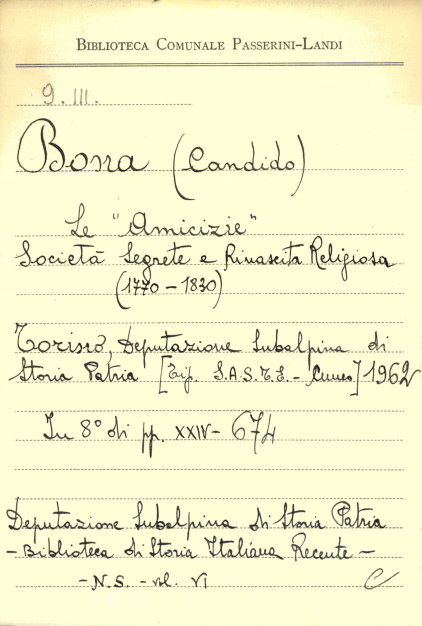 BIBLIOTECA COMUNALE PASSERINI-LANDI
9. III.
Bona (Candido)
Le "Amicizie"
Società Segrete e Rinascita Religiosa
(1770 - 1830)
Torino, Deputazione Subalpina di
Storia Patria [Tip. S.A.S.T.E. - Cuneo] 1962
In 8° di pp. XXIV - 674
Deputazione Subalpina di Storia Patria
- Biblioteca di Storia Italiana Recente -
- N.S. - vol. VI
C